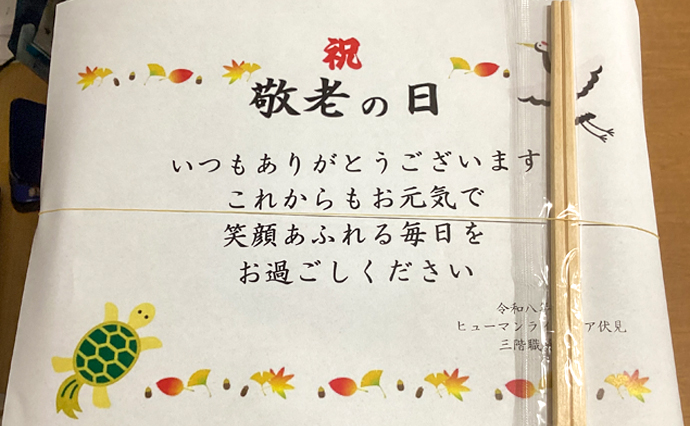 祝
敬老の日
いつもありがとうございます
これからもお元気で
笑顔あふれる毎日を
お過ごしください
令和八
ヒューマンライ ア伏見
三階職